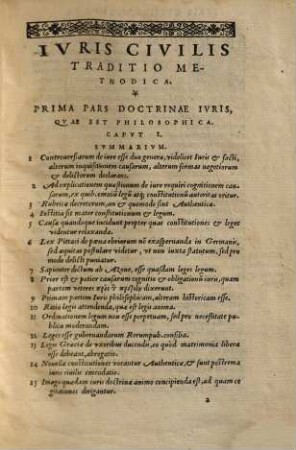 IVRIS CIVILIS
TRADITIO ME-
THODICA.
PRIMA PARS DOCTRINAE IVRIS,
QVAE EST PHILOSOPHICA.
CAPVT I.
SVMMARIVM.
1 Controuersiarum de iure esse duo genera, videlicet Iuris & facti,
alterum inquisitionem causarum, alterum formas negotiorum
& delictorum declarans.
2 Ad explicationem quæstionum de iure requiri cognitionem cau-
sarum, ex quib. emanâ legũ atq; constitutionũ autoritas oritur.
3 Rubrica decretorum, an & quomodo sint Authentica.
4 Fictitia sit mater constitutionum & legum.
5 Causæ quandoque incidunt propter quas constitutiones & leges
videntur relaxandæ.
6 Lex Pittaci de pœna ebriorum nõ exasperanda in Germania,
sed æquitas postulare videtur, vt non iuxta statutum, sed pro
modo delicti puniatur.
7 Sapientum dictum ab Azone, esse quasdam leges legum.
8 Prior est & potior causarum cognitio & obligationis iuris, quam
partem veteres
dixerunt.
9 Primam partem Iuris philosophicam, alteram historicam esse.
10 Ratio legis attendenda, qua est legis anima.
11 Ordinationem legum non esse perpetuam, sed pro necessitate pu-
blica moderandam.
12 Leges esse gubernandarum Rerumpub. consilia.
13 Lege Græcia de vxoribus ducendis, eo quòd matrimonia libera
esse debeant, abrogatio.
14 Nouellæ constitutiones vocantur Authenticæ, & sunt postrema
iuris ciuilis emendatio.
15 Imago quædam iuris doctrinæ animo concipienda est, ad quam co
gitationes dirigantur.
a